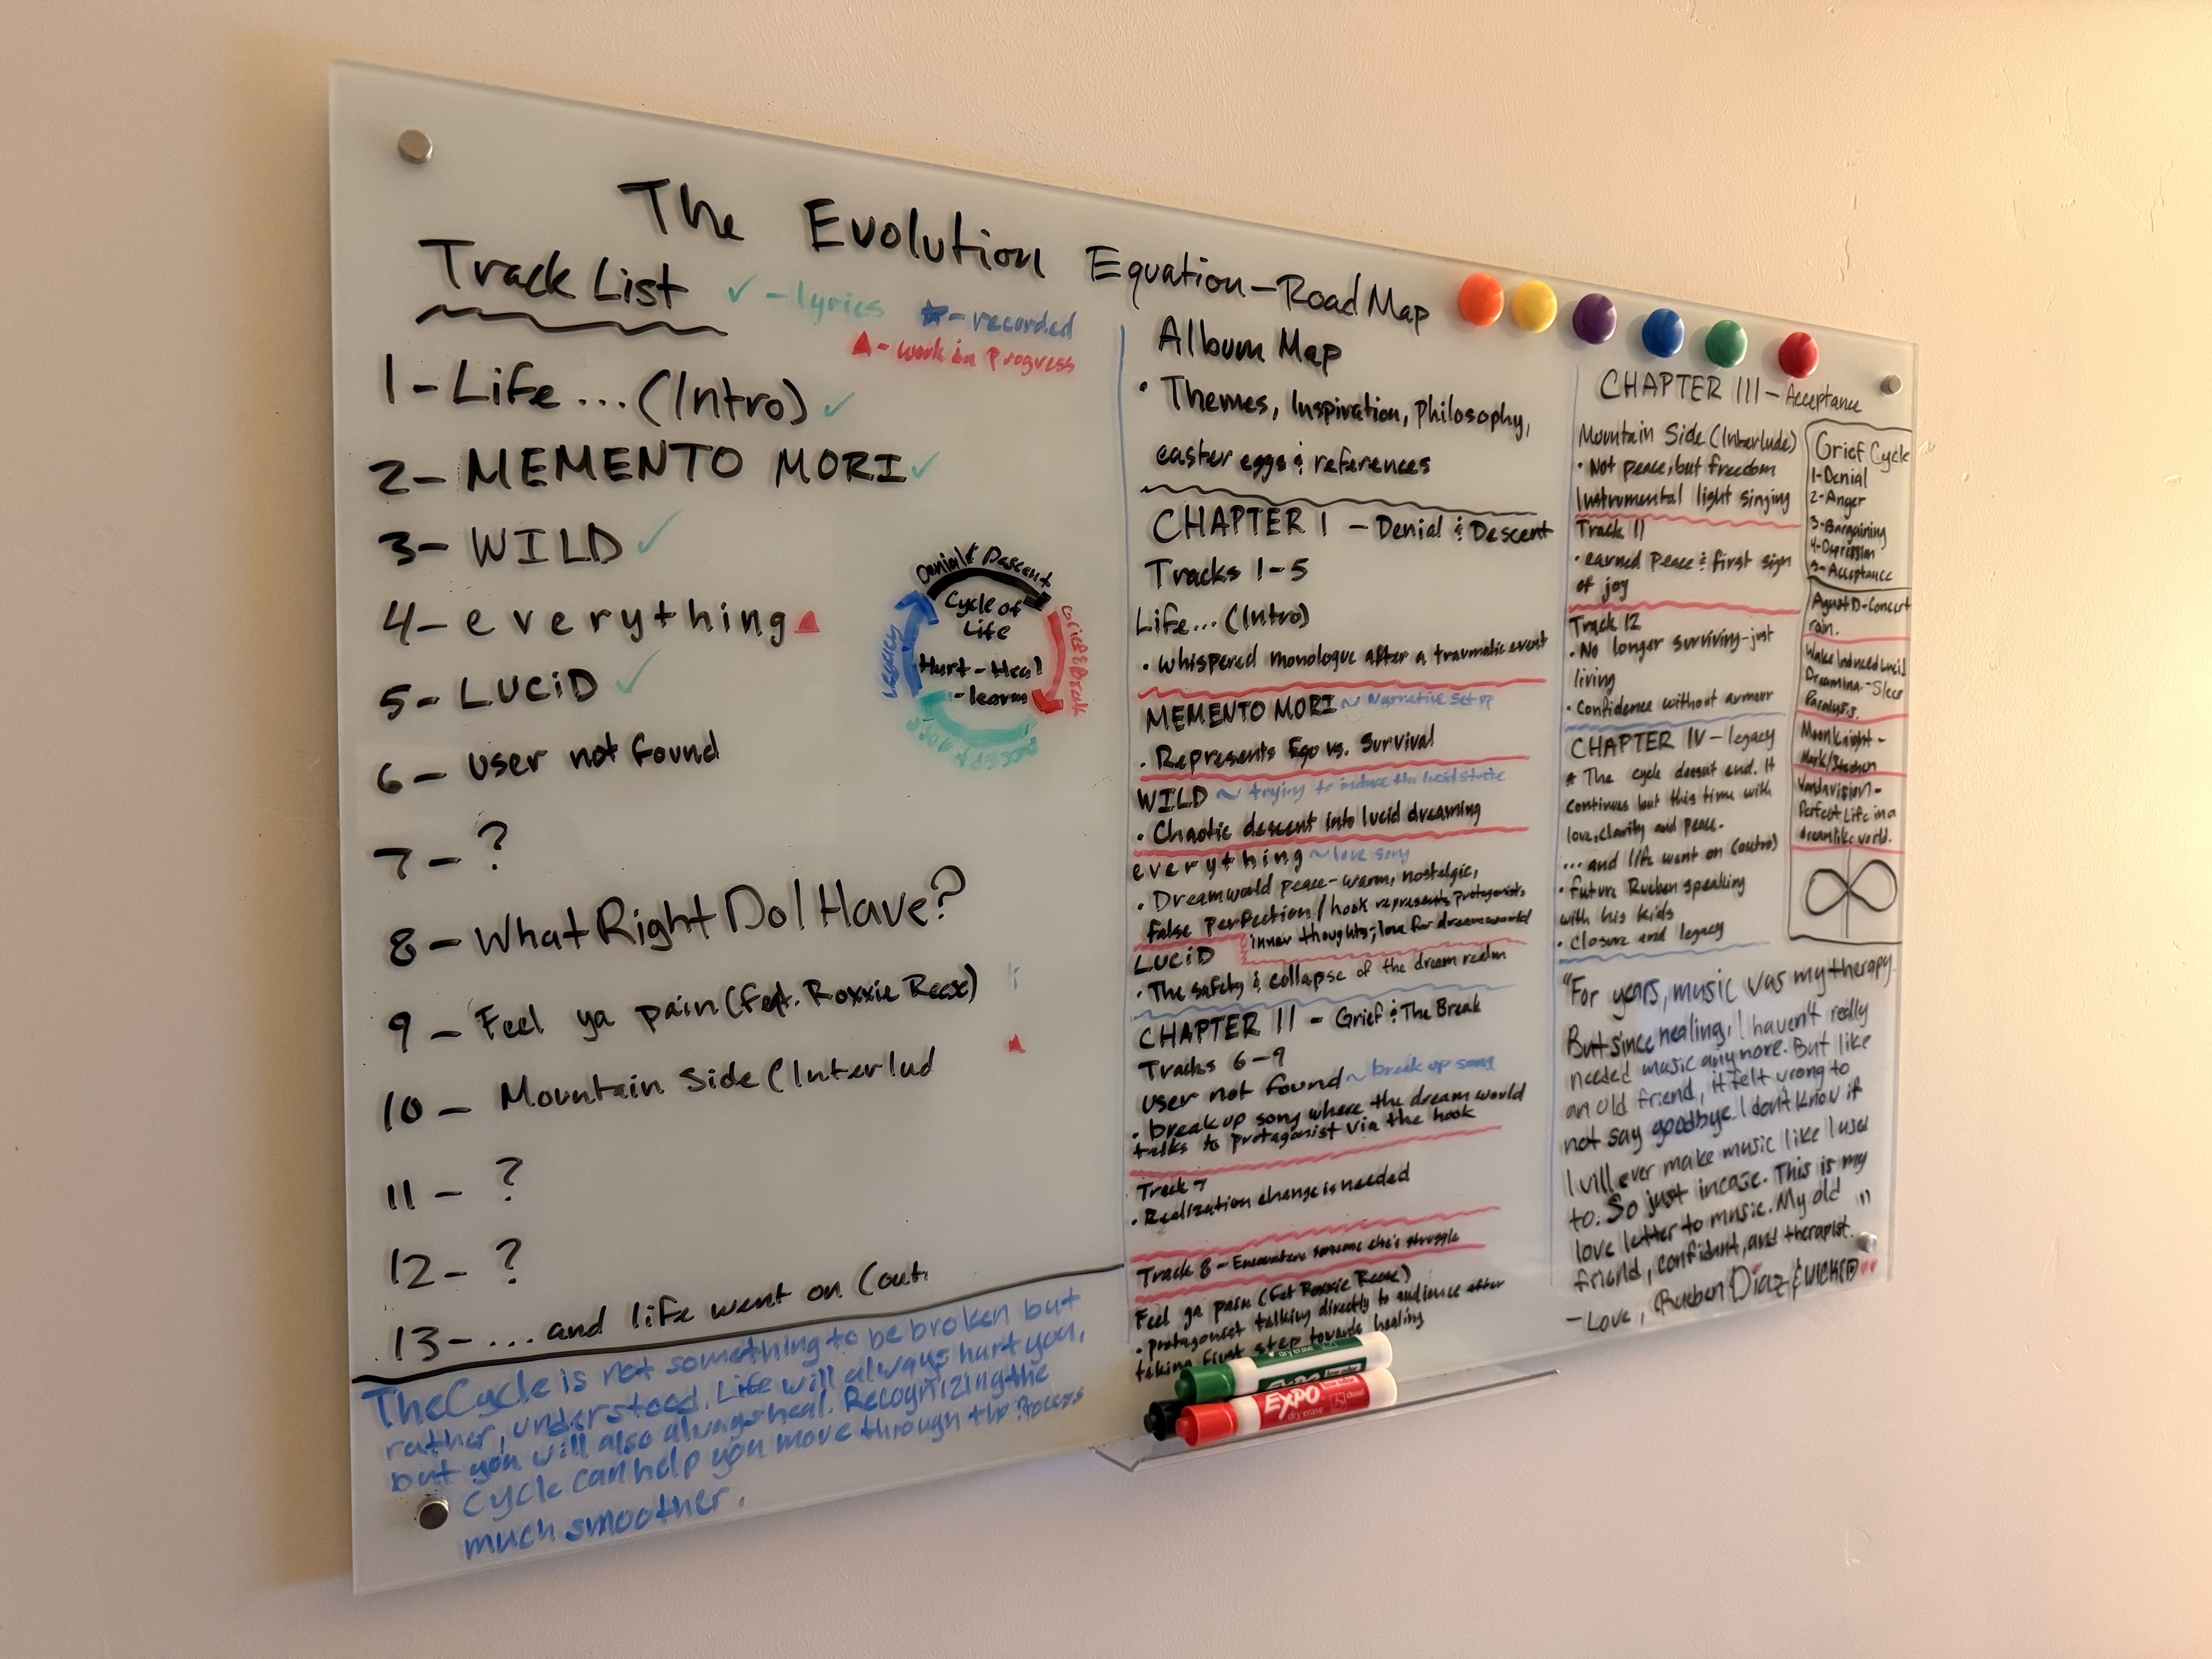 The Evolution Equation-Road Map
Track List
✓ - lyrics
★ - recorded
▲ - work in progress
1 - Life... (Intro) ✓
2 - MEMENTO MORI ✓
3 - WILD ✓
4 - everything ▲
5 - LUCiD ✓
6 - user not found
7 - ?
8 - What Right Do I Have?
9 - Feel ya pain (feat. Roxxie Reese)
10 - Mountain Side (Interlud
11 - ?
12 - ?
13 - ...and life went on (out
Denial & Descent
Grief & Break
Acceptance
Legacy
Cycle of
Life
Hurt - Heal
- learn
The Cycle is not something to be broken but
rather, understood. Life will always hurt you,
but you will also always heal. Recognizing the
Cycle can help you move through the Process
much smoother.
Album Map
• Themes, Inspiration, Philosophy,
easter eggs & references
CHAPTER I - Denial & Descent
Tracks 1-5
Life... (Intro)
• whispered monologue after a traumatic event
MEMENTO MORI ~ Narrative set up
• Represents Ego vs. Survival
WILD ~ trying to induce the lucid state
• Chaotic descent into lucid dreaming
everything ~ love song
• Dreamworld peace - warm, nostalgic,
false perfection / hook represents protagonists
inner thoughts; love for dreamworld
LUCiD
• The safety & collapse of the dream realm
CHAPTER II - Grief & The Break
Tracks 6-9
user not found ~ break up song
• break up song where the dream world
talks to protagonist via the hook
Track 7
• Realization change is needed
Track 8 - Encounters someone else's struggle
Feel ya pain (fet Roxxie Reese)
• protagonist talking directly to audience after
taking first step towards healing
CHAPTER III - Acceptance
Mountain Side (Interlude)
• Not peace, but freedom
Instrumental light singing
Track 11
• earned peace & first sign
of joy
Track 12
• No longer surviving - just
living
• Confidence without armour
CHAPTER IV - legacy
* The cycle doesnt end. It
continues but this time with
love, clarity and peace.
...and life went on (outro)
• future Rueben speaking
with his kids
• Closure and legacy
Grief Cycle
1-Denial
2-Anger
3-Bargaining
4-Depression
5-Acceptance
Agust D - Concert
rain.
Wake Induced Lucid
Dreaming - Sleep
Paralysis.
Moon Knight -
Mark/Steven
Wandavision -
Perfect Life in a
dreamlike world.
"For years, music was my therapy.
But since healing, I haven't really
needed music anymore. But like
an old friend, it felt wrong to
not say goodbye. I don't know if
I will ever make music like I used
to. So just incase. This is my
love letter to music. My old
friend, confidant, and therapist."
- Love, Rueben Diaz & WICKED
EXPO
low odor
dry erase
chisel
dry erase